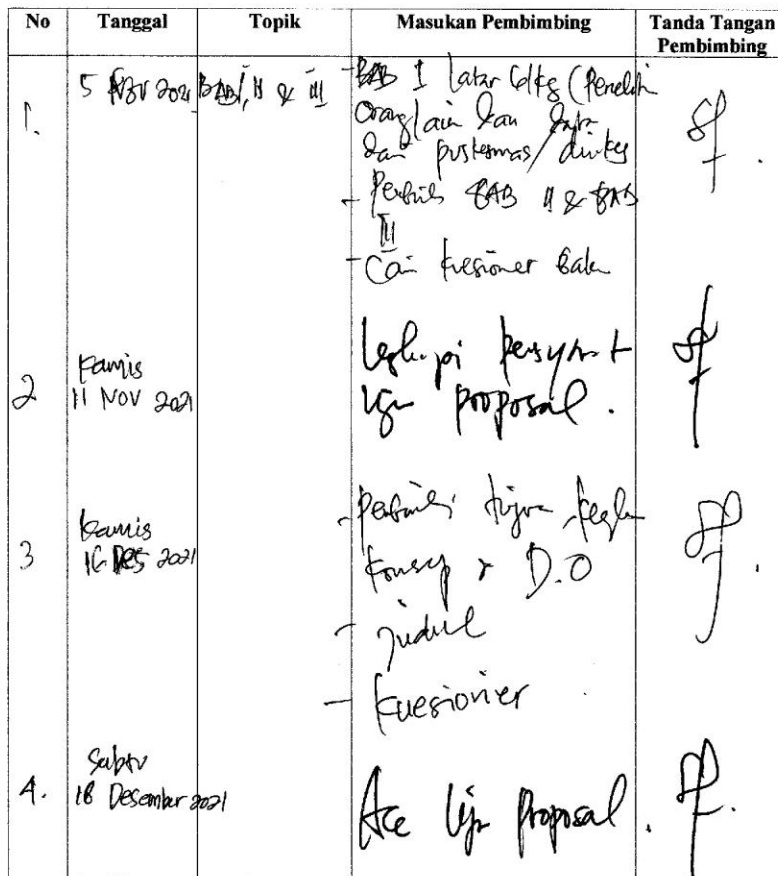 No Tanggal Topik Masukan Pembimbing Tanda Tangan Pembimbing
1. 5 Nov 2021 BAB I, II & III - BAB I latar (Peneliti
orang lain dan data
dari puskesmas/dinkes
- BAB II & BAB
III
- Cari kuesioner
2 Kamis
11 Nov 2021
proposal.
3 Kamis
16 Des 2021
Konsep & D.O
- judul
- kuesioner
4. Sabtu
18 Desember 2021
Acc Uji proposal.